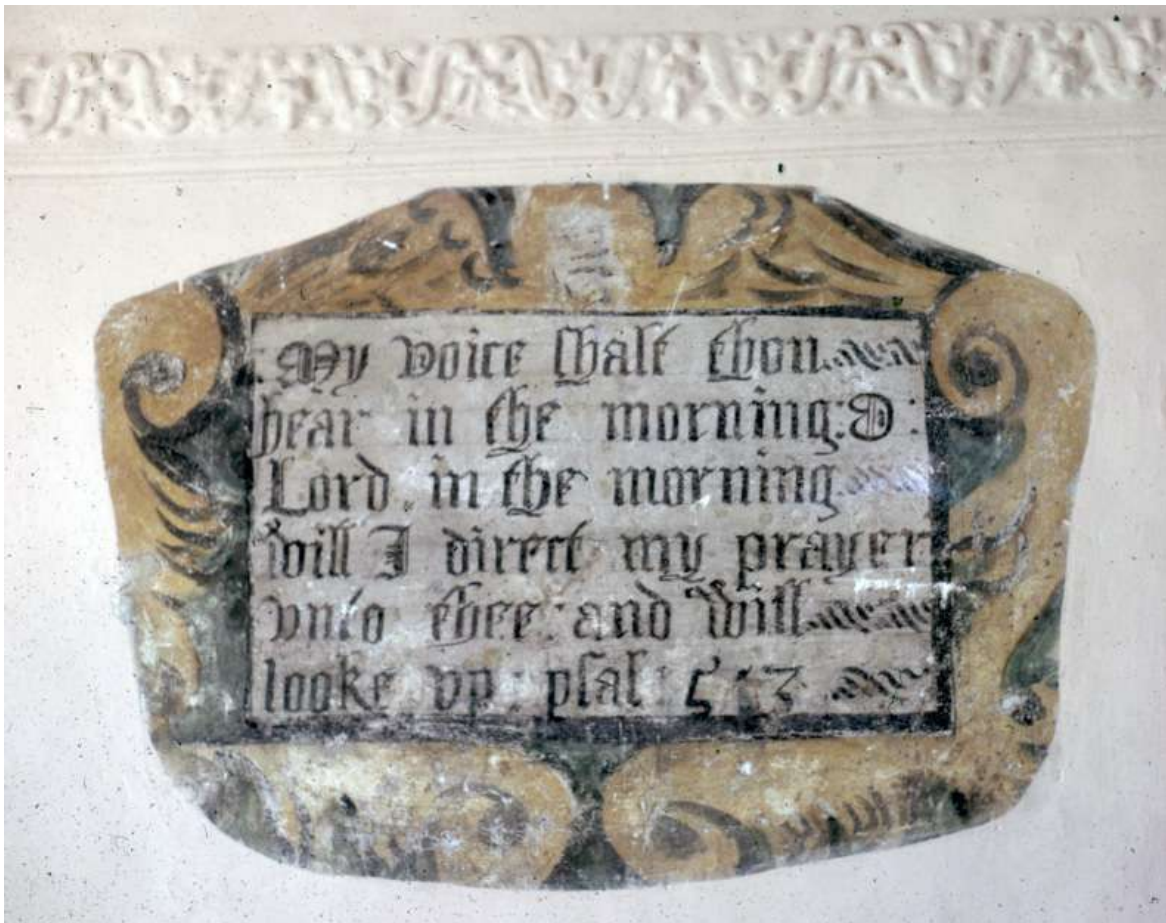 : My voice shalt thou
hear in the morning: O:
Lord in the morning
will I direct my prayer
vnto thee: and will
looke vp: psal: 5: 3